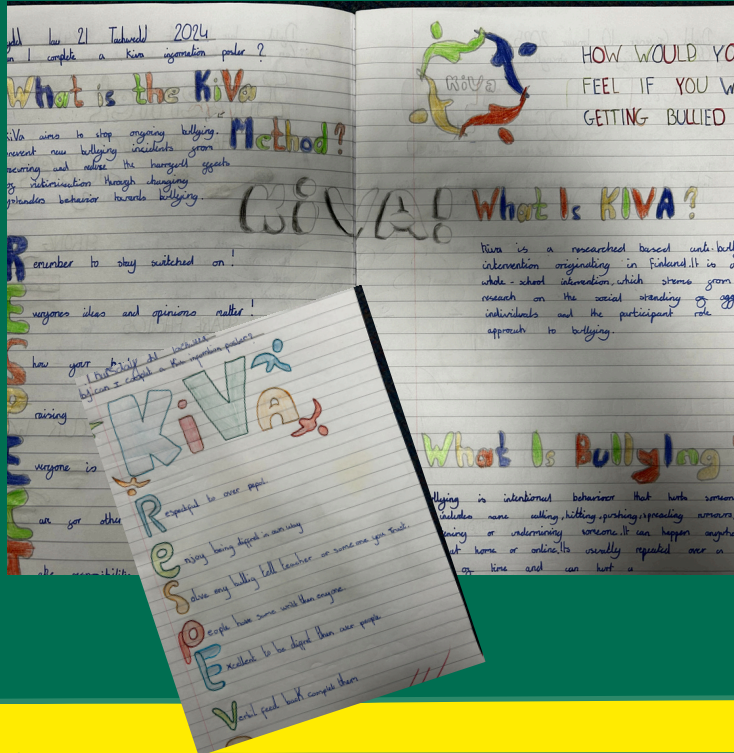 21 Tachwedd 2024
I complete a Kiva infomation poster ?
What is the KiVa
Method?
KiVa aims to stop ongoing bullying.
new bullying incidents from
and reduce the harmful effects
of victimisation through changing
behavior towards bullying.
Remember to stay switched on!
Everyones ideas and opinions matter!
how your
raising
everyone is
are for other
KiVA!
KiVa
HOW WOULD YO
FEEL IF YOU W
GETTING BULLIED
What Is KIVA?
Kiva is a researched based anti-bull
intervention originating in Finland.It is a
whole-school intervention,which stems from
research on the social standing of agg
individuals and the participant role
approach to bullying.
What Is Bullying
llying is intentional behaviour that hurts someon
includes name calling,hitting,pushing,spreading rumours,
or undermining someone.It can happen anywhe
at home or online.Its usually repeated over a
of time and can hurt a
can I complet a Kiva
KiVa
Respectful to over
Enjoy being diffrnt in own way
Solve any bulling tell teacher or some one you trust.
People have same than enyone.
Excellent to be diffrnt than over people
Verbal feed back complet them